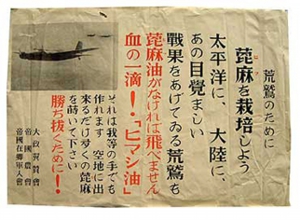 荒鷲のために
蓖麻を栽培しよう
太平洋に、大陸に、
あの目覚ましい
戦果をあげてゐる荒鷲も
蓖麻油がなければ飛べません
血の一滴!「ヒマシ油」
それは我等の手でも
作れます 空地に出
来るだけ多くの蓖麻
を蒔いて下さい
勝ち抜くために!!
大政翼賛會
帝國農會
帝國在郷軍人會